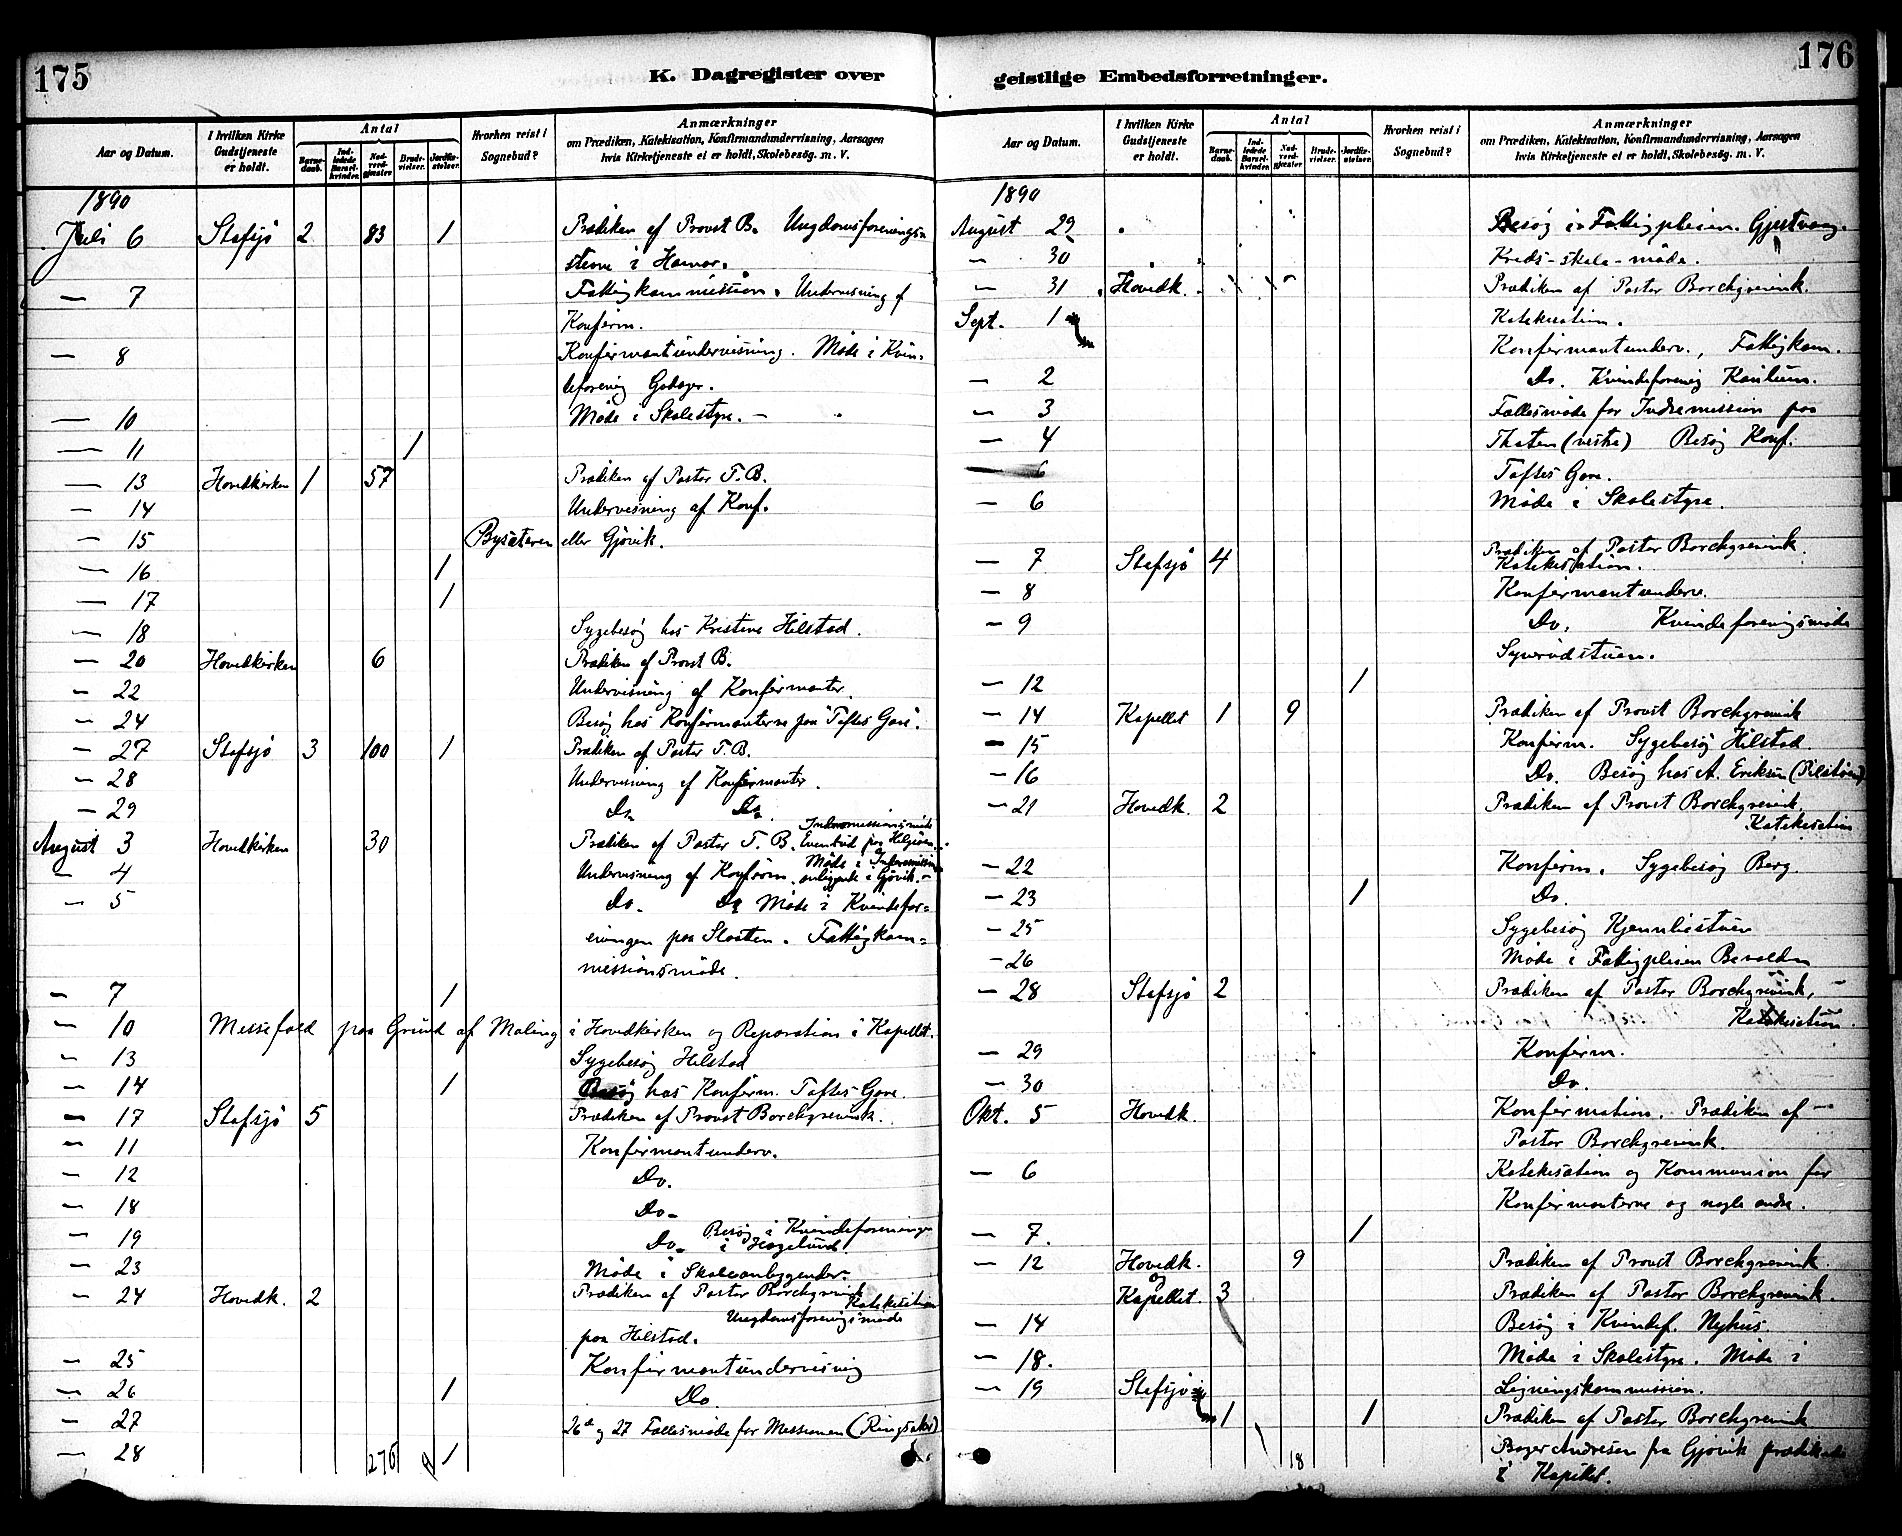 175
K. Dagregister over
Aar og Datum.
I hvilken Kirke Gudstjeneste er holdt.
Antal
Barnedaab.
Indledede Barselkvinder.
Nadverdgjæster
Brudevielser.
Jordfæstelser.
Hvorhen reist i Sognebud?
Anmærkninger
om Prædiken, Katekisation, Konfirmandundervisning, Aarsagen
hvis Kirketjeneste ei er holdt, Skolebesög. m. V.
1890
Juli 6 Stafsjö 2 83 1 Prædiken af Provst B. Ungdomsforenings-
stevne i Hamar.
— 7 Fattigkommission. Undervisning af
Konfirm.
— 8 Konfirmantundervisning. Møde i Kvin-
deforenig
— 10 Møde i Skolestyre.
— 11 1
— 13 Hovedkirken 1 57 Prædiken af Pastor T. B.
— 14 Undervisning af Konf.
— 15 Bysæteren eller Gjøvik.
— 16 1
— 17 1
— 18 Sygebesøg hos Kristine Hilstad.
— 20 Hovedkirken 6 Prædiken af Provst B.
— 22 Undervisning af Konfirmanter.
— 24 Besøg hos Konfirmanterne paa "Toftes Gave".
— 27 Stafsjö 3 100 1 Prædiken af Pastor T. B.
— 28 Undervisning af Konfirmanter.
— 29 Do. Do.
August 3 Hovedkirken 30 Prædiken af Pastor T. B. Indremissionsmøde
— 4 Undervisning af Konfirm. Møde i i Gjøvik.
— 5 Do. Do Møde i Kvindefor-
eningen paa Sloatten. Fattigkom-
missionsmøde.
— 7 1
— 10 Messefald paa Grund af Maling i Hovedkirken og Reparation i Kapellet.
— 13 Sygebesøg Hilstad
— 14 1 Besøg hos Konfirm. Toftes Gave.
— 17 Stafsjö 5 Prædiken af Provst Borchgrevink.
— 11 Konfirmantunderv.
— 12 Do.
— 18 Do.
— 19 Do. Besøg i Kvindeforeningen
i Hagelund
— 23 Møde i Skoleanliggender.
— 24 Hovedk. 2 Prædiken af Pastor Borchgrevink
Katekisation
Ungdomsforeningsmøde
paa Hilstad.
— 25 Konfirmantundervisnig
— 26 1 Do.
— 27 26de og 27 Fællesmøde for Missionen (Ringsaker)
— 28 276
176
geistlige Embedsforretninger.
Aar og Datum.
I hvilken Kirke Gudstjeneste er holdt.
Antal
Barnedaab.
Indledede Barselkvinder.
Nadverdgjæster
Brudevielser.
Jordfæstelser.
Hvorhen reist i Sognebud?
Anmærkninger
om Prædiken, Katekisation, Konfirmandundervisning, Aarsagen
hvis Kirketjeneste ei er holdt, Skolebesög. m. V.
1890
August 29 Besøg i Fattigpleien. Gjestvang.
— 30 Kreds-skole-møde.
— 31 Hovedk. Prædiken af Pastor Borchgrevink.
Katekisation.
Sept. 1 Konfirmantunderv., Fattigkom.
— 2 Do. Kvindeforenig Kavlum.
— 3 Fællesmøde for Indremission paa
— 4 (vestre) Besøg Konf.
6 Toftes Gave.
— 6 Møde i Skolestyre.
— 7 Stafsjö 4 Prædiken af Pastor Borchgrevink.
Katekisation.
— 8 Konfirmantunderv.
— 9 Do. Kvindeforeningsmøde
— 12 1
— 14 Kapellet 1 9 Prædiken af Provst Borchgrevink
— 15 Konfirm. Sygebesøg Hilstad.
— 16 Do. Besøg hos A. Eriksen
— 21 Hovedk 2 Prædiken af Provst Borchgrevink.
Katekisation
— 22 Konfirm. Sygebesøg Berg.
— 23 1 Do.
— 25 Sygebesøg Kjennliestuen
— 26 Møde i Fattigpleien
— 28 Stafsjö 2 Prædiken af Pastor Borchgrevink,
Katekisation.
— 29 Konfirm.
— 30 Do.
Okt. 5 Hovedk. Konfirmation. Prædiken af
Pastor Borchgrevink.
— 6 Katekisation og Kommunion for
Konfirmanterne og nogle andre.
— 7. 1
— 12 Hovedk. 9 Prædiken af Provst Borchgrevink.
og
Kapellet. 3 Prædiken af Pastor Borchgrevink.
— 14 Besøg i Kvindef. Nyhus.
— 18. Møde i Skolestyre. Møde i
— 19 Stafsjö Ligningskommission.
1 1 Prædiken af Pastor Borchgrevink
18 Andresen fra Gjøvik prædikede
i Kapellet.